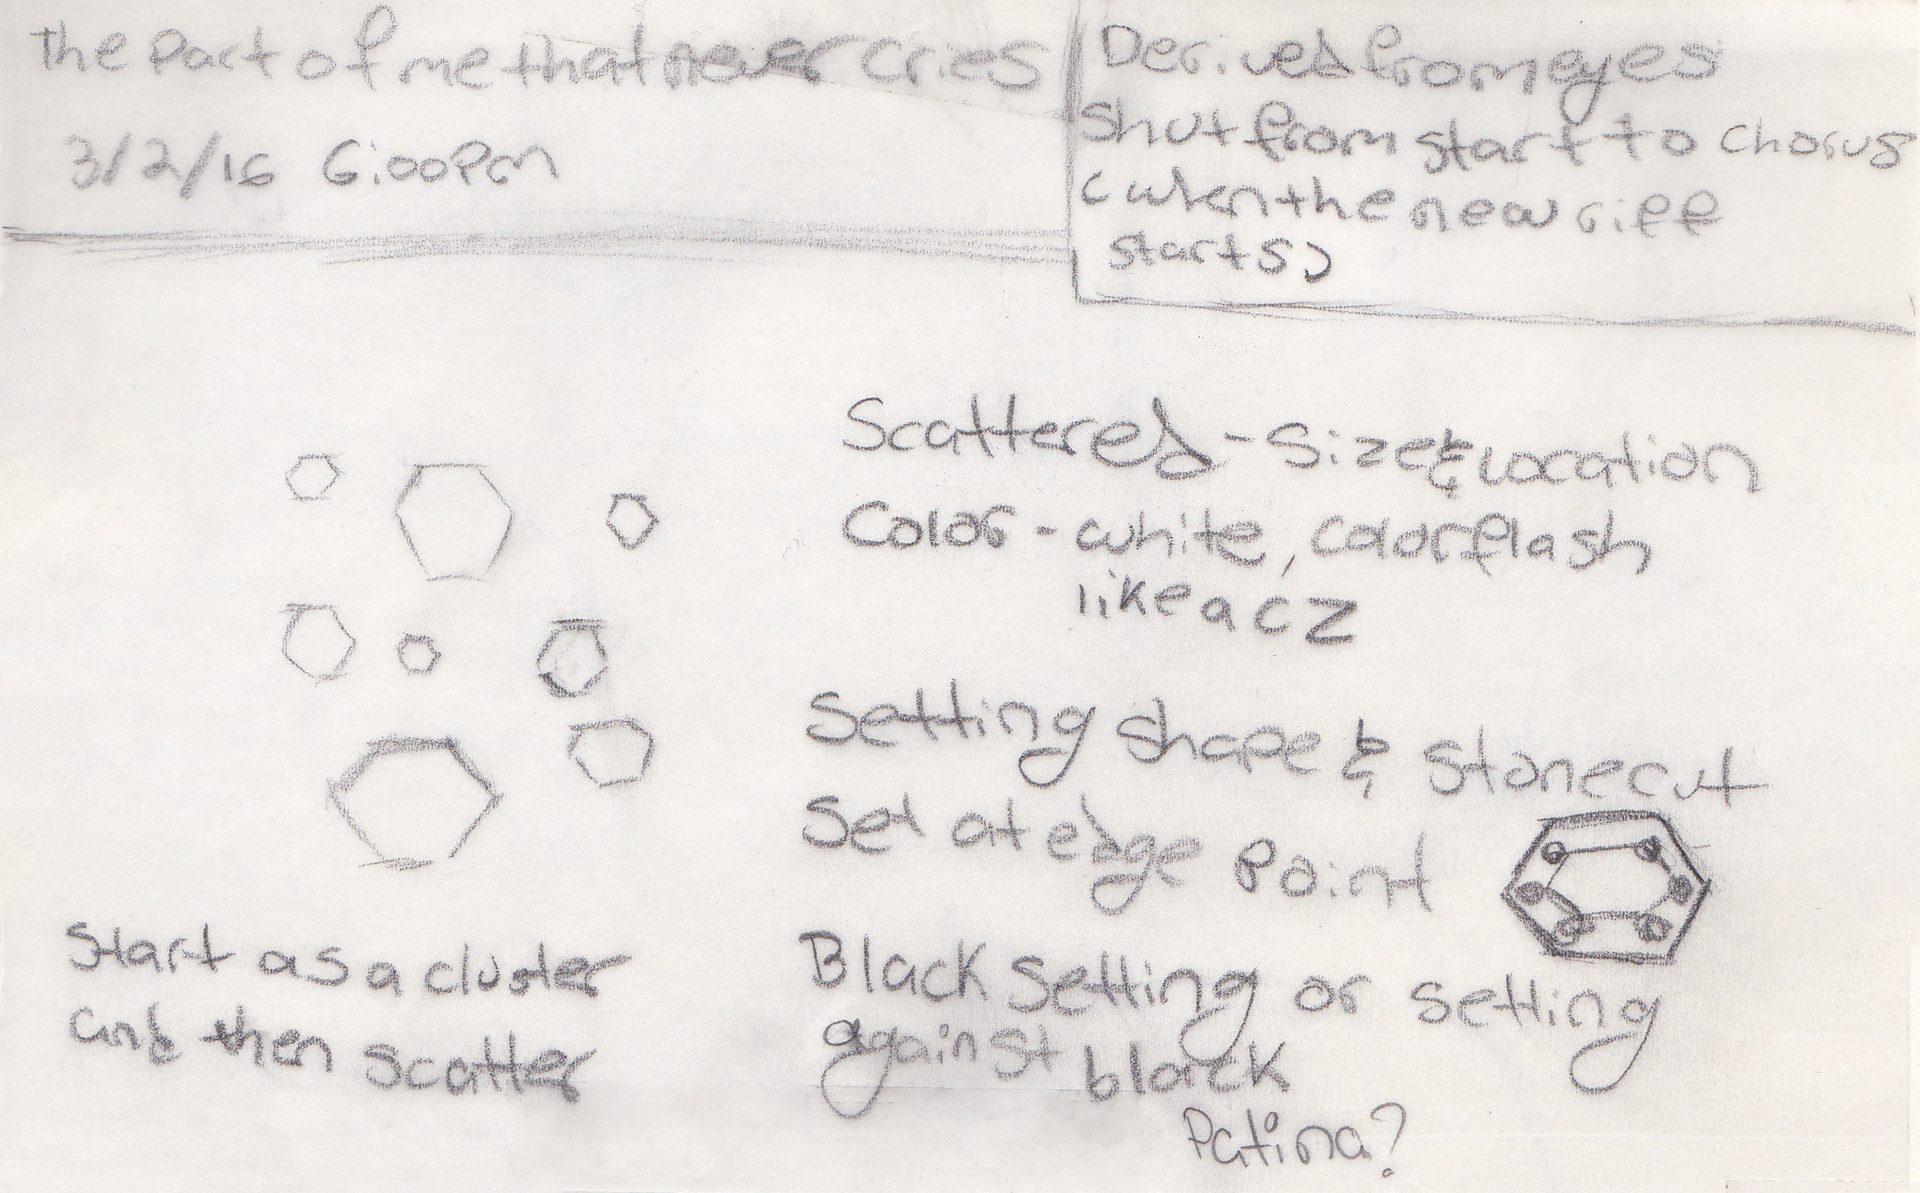 The part of me that never cries
3/2/16 6:00pm
Derived from eyes
shut from start to chorus
(when the new riff
starts)
Scattered - size & location
Color - white, color flash
like a CZ
Setting shape & stone cut
Set at edge point
Black setting or setting
against black
Patina?
Start as a cluster
and then scatter